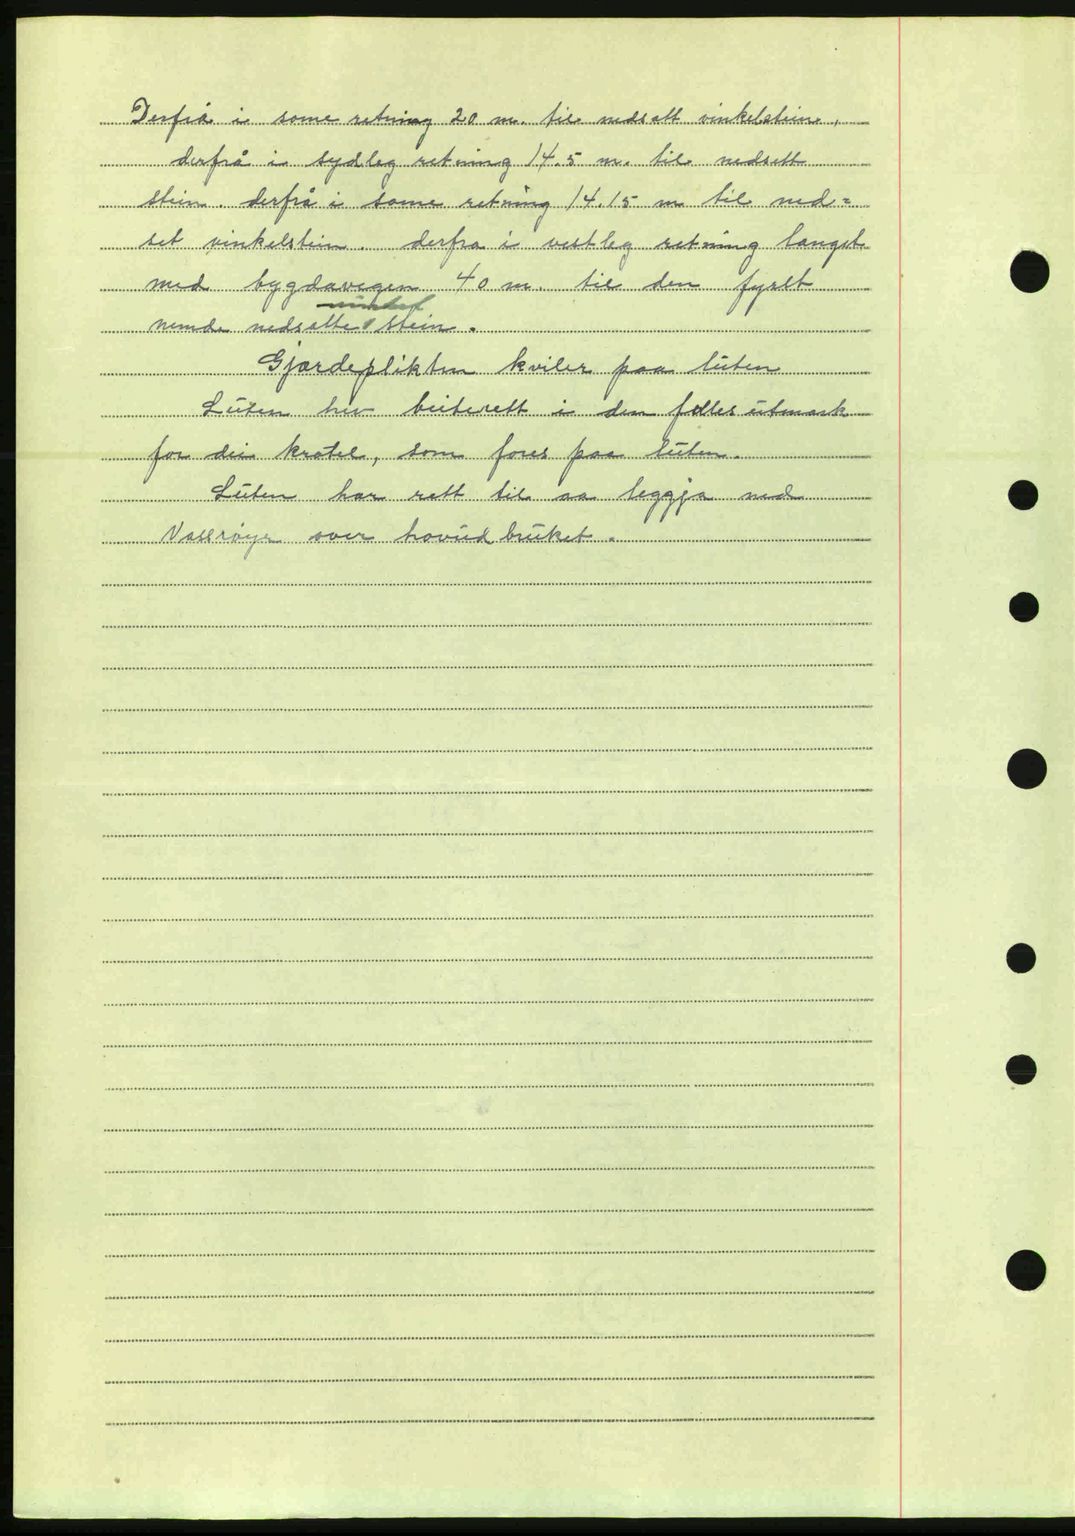 Derfrå i same retning 20 m. til nedsatt vinkelstein,
derfrå i sydleg retning 14.5 m. til nedsett
stein. derfrå i same retning 14.15 m til ned=
set vinkelstein. derfra i vestleg retning langst
med bygdavegen 40 m. til den fyrst
nemde nedsatte vinkel stein.
Gjærdeplikten kviler paa luten
Luten hev beiterett i den felles utmark
for dei krøtel, som fores paa luten.
Luten har rett til aa leggja ned
Vassrøyr over hovudbruket.